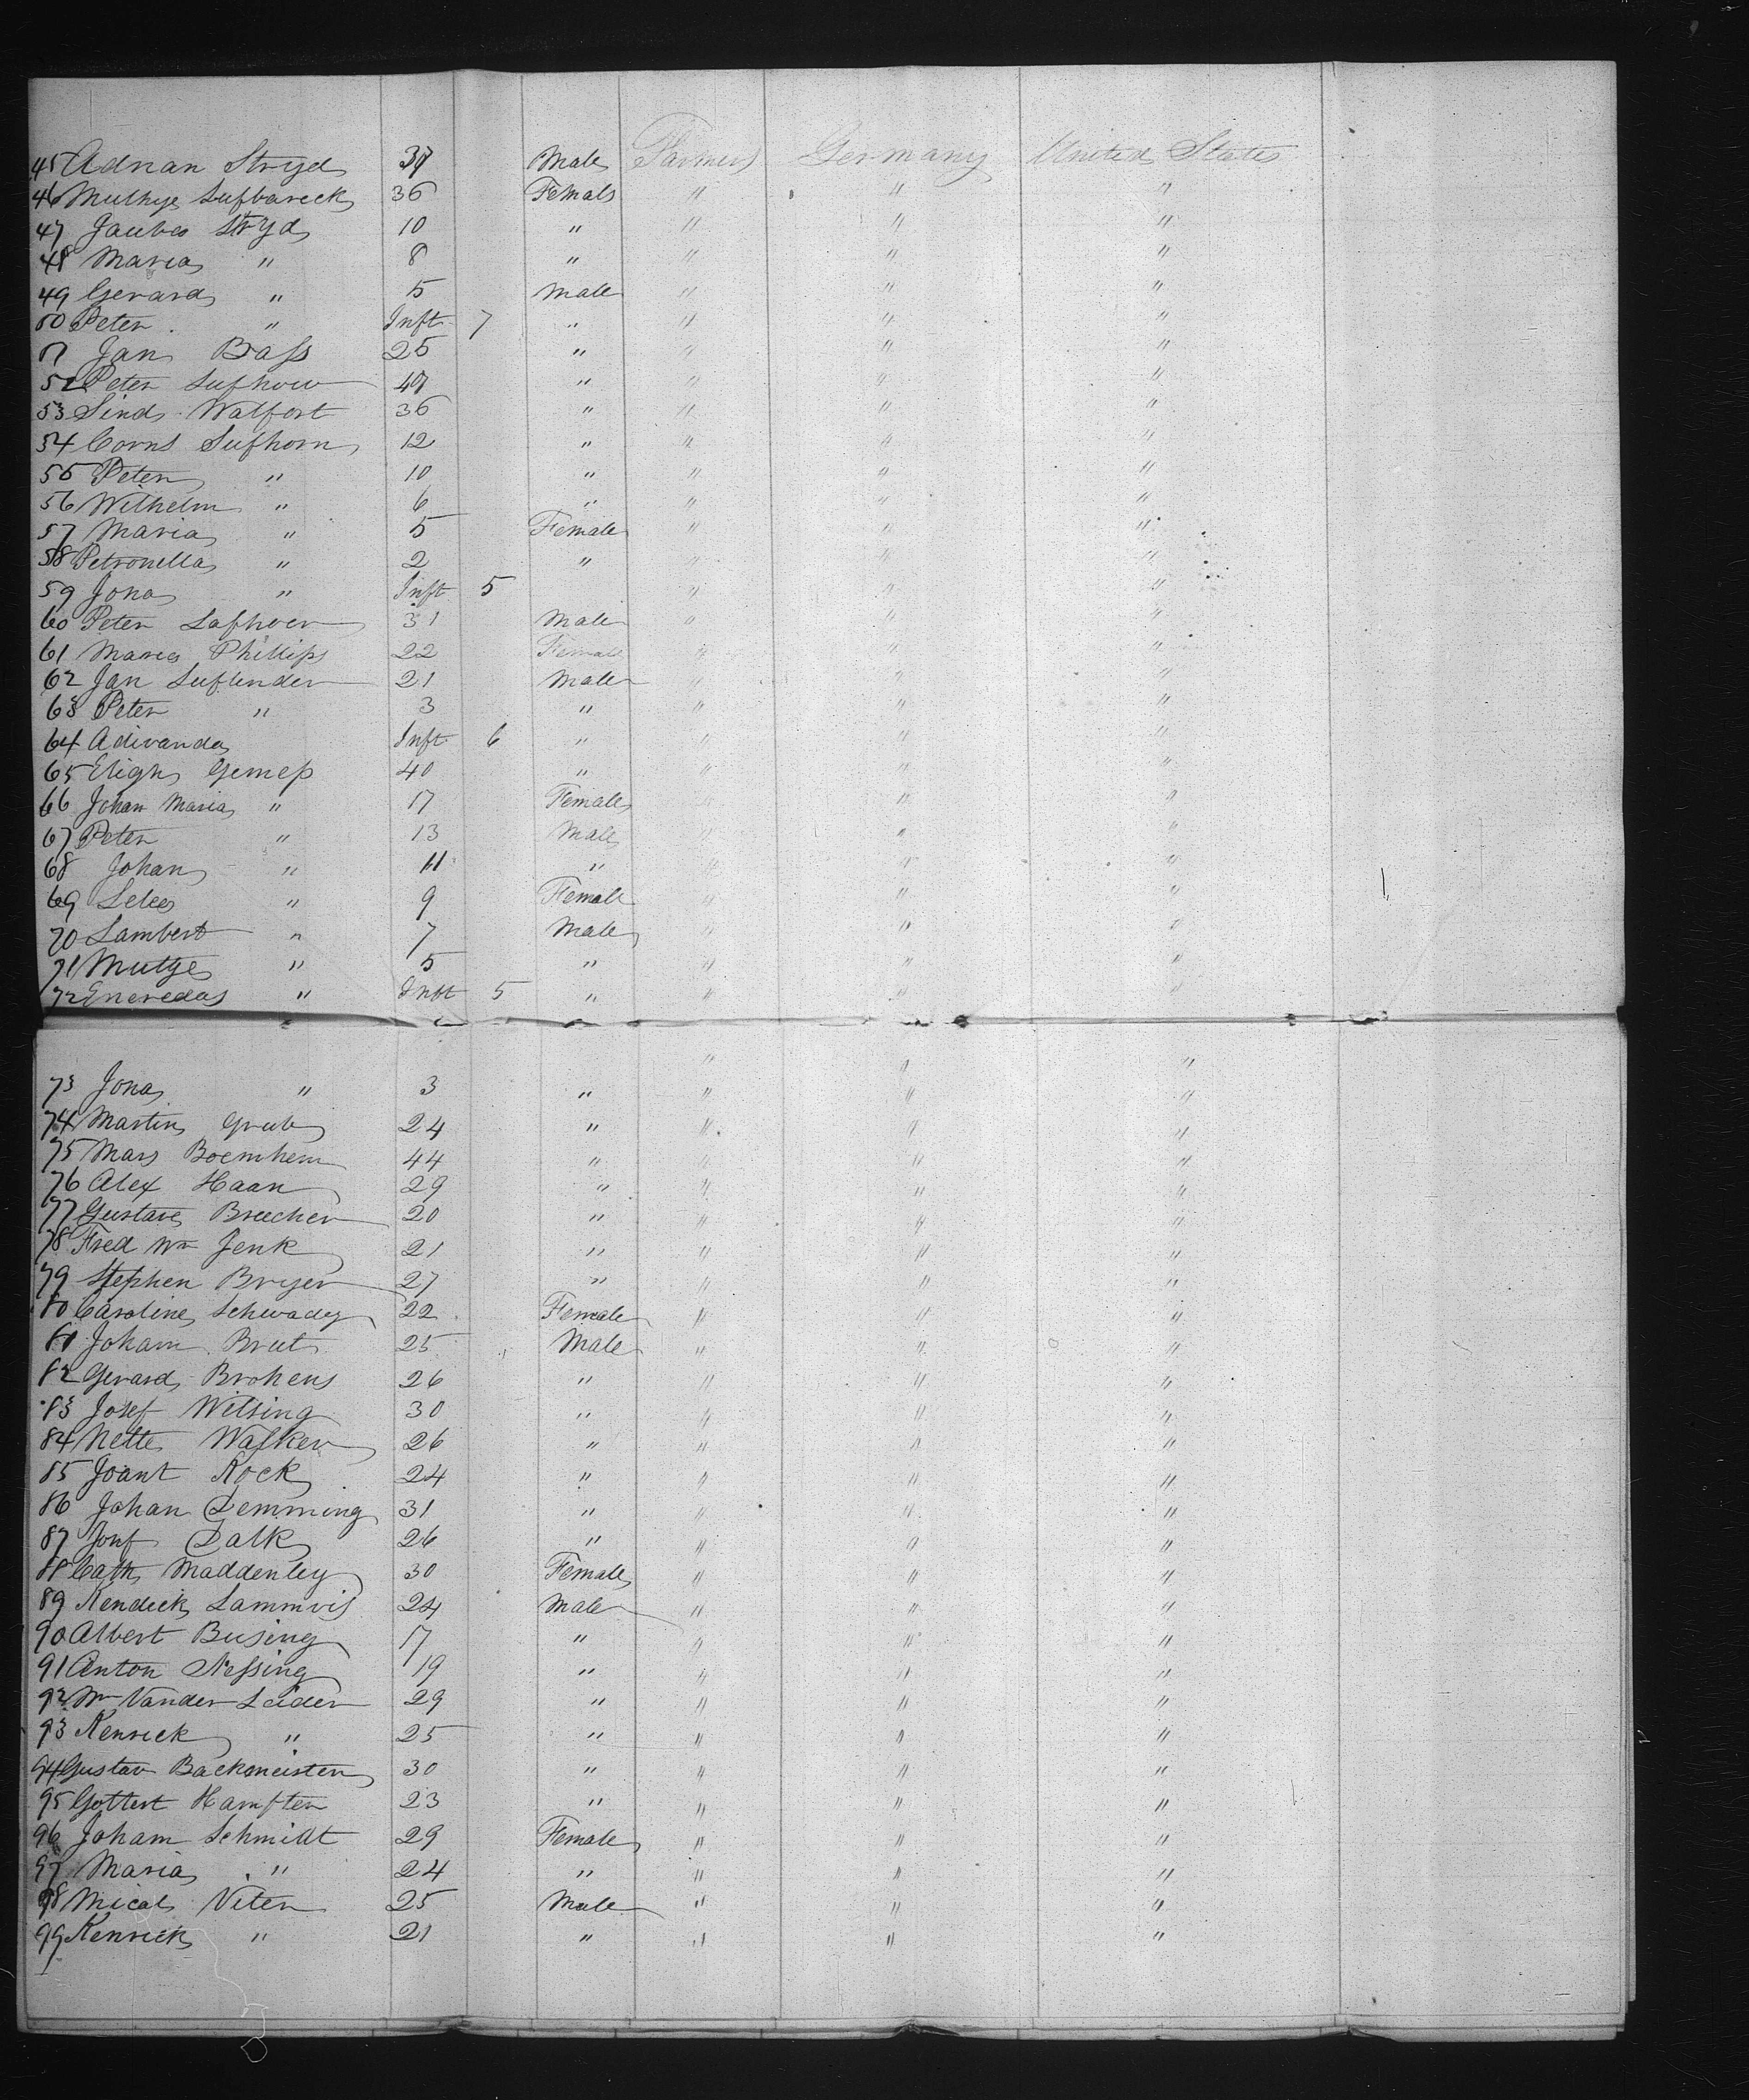 45 Adrian Stryd 37 Male Farmers Germany United States
46 Muthye Lufbareck 36 Female " " "
47 Jaubes Stryd 10 " " " "
48 Maria " 8 " " " "
49 Gerard " 5 Male " " "
50 Peter " Inft 7 " " " "
51 Jan Bass 25 " " " "
52 Peter Lufhow 47 " " " "
53 Lind Walfort 36 " " " "
54 Corns Lufhorn 12 " " " "
55 Peter " 10 " " " "
56 Wilhelm " 6 " " " "
57 Maria " 5 Female " " "
58 Petronella " 2 " " " "
59 Jona " Inft 5 " " "
60 Peter Lafhoer 31 Male " " "
61 Maria Phillips 22 Female " " "
62 Jan Luflender 21 Male " " "
63 Peter " 3 " " " "
64 Adivanda Inft 6 " " " "
65 Eligh Gemess 40 " " " "
66 Johan Maria " 17 Female " " "
67 Peter " 13 Male " " "
68 Johan " 11 " " " "
69 Lelee " 9 Female " " "
70 Lambert " 7 Male " " "
71 Mutye " 5 " " " "
72 Eneredas " Inft 5 " " " "
" " "
73 Jona " 3 " " " "
74 Martin Grub 24 " " " "
75 Mars Boemhem 44 " " " "
76 Alex Haan 29 " " " "
77 Gustave Breecher 20 " " " "
78 Fred Wm Jenk 21 " " " "
79 Stephen Bryer 27 " " " "
80 Caroline Schwadey 22 Female " " "
81 Joham Brut 25 Male " " "
82 Gerard Brohens 26 " " " "
83 Josef Wilsing 30 " " " "
84 Nette Walker 26 " " " "
85 Joant Rock 24 " " " "
86 Johan Lemming 31 " " " "
87 Josf Dalk 26 " " " "
88 Cath Maddenley 30 Female " " "
89 Kendeck Lammvis 24 Male " " "
90 Albert Busing 17 " " " "
91 Anton Nessing 19 " " " "
92 Wm Vander Leider 29 " " " "
93 Kenrick " 25 " " " "
94 Gustav Backmeister 30 " " " "
95 Gottert Hamften 23 " " " "
96 Joham Schmidt 29 Female " " "
97 Maria " 24 " " " "
98 Mical Viter 25 Male " " "
99 Kenrick " 21 " " " "